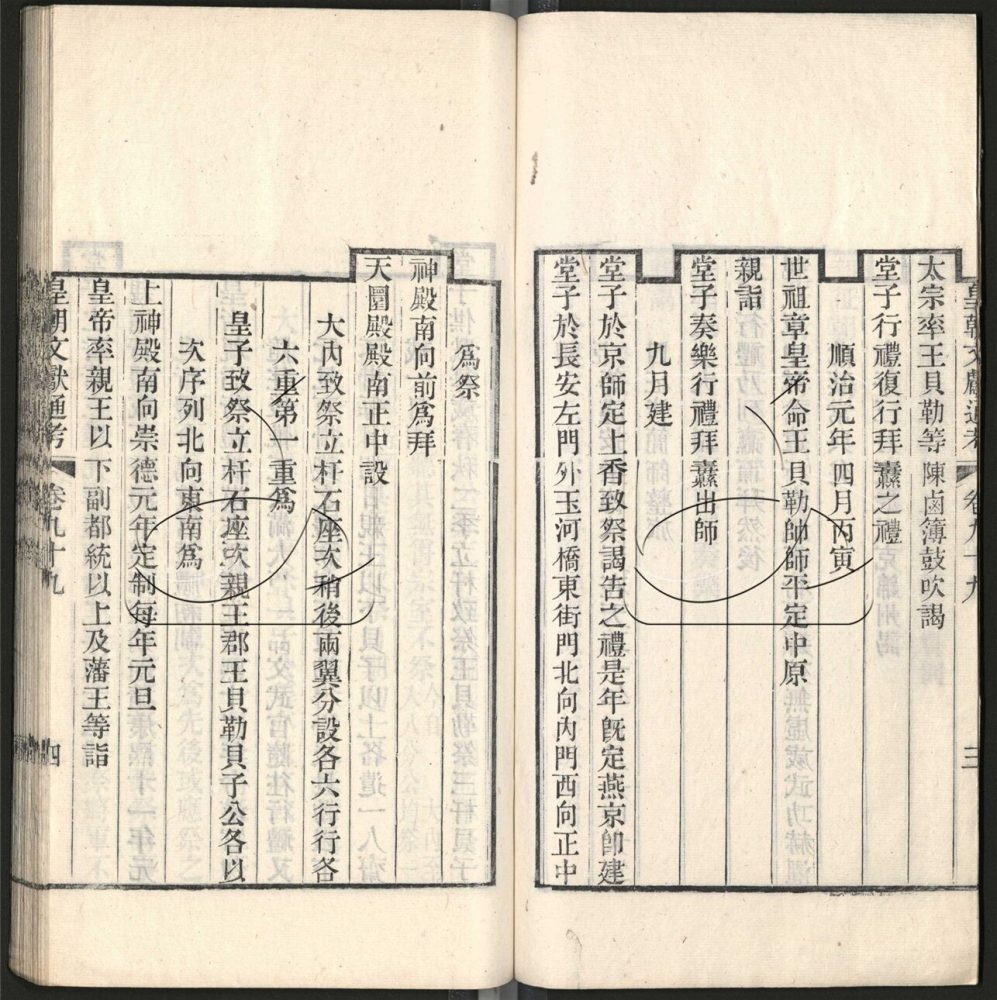 皇朝文獻通考 卷九十九 三
太宗率王貝勒等陳鹵簿鼓吹謁
堂子行禮復行拜纛之禮
順治元年四月丙寅
世祖章皇帝命王貝勒帥師平定中原
親詣
堂子奏樂行禮拜纛出師
九月建
堂子於京師定上香致祭謁告之禮是年旣定燕京卽建
堂子於長安左門外玉河橋東街門北向內門西向正中
爲祭
神殿南向前爲拜
天圜殿殿南正中設
大內致祭立杆石座次稍後兩翼分設各六行行各
六重第一重爲
皇子致祭立杆石座次親王郡王貝勒貝子公各以
次序列北向東南爲
上神殿南向崇德元年定制每年元旦
皇帝率親王以下副都統以上及藩王等詣
皇朝文獻通考 卷九十九 四